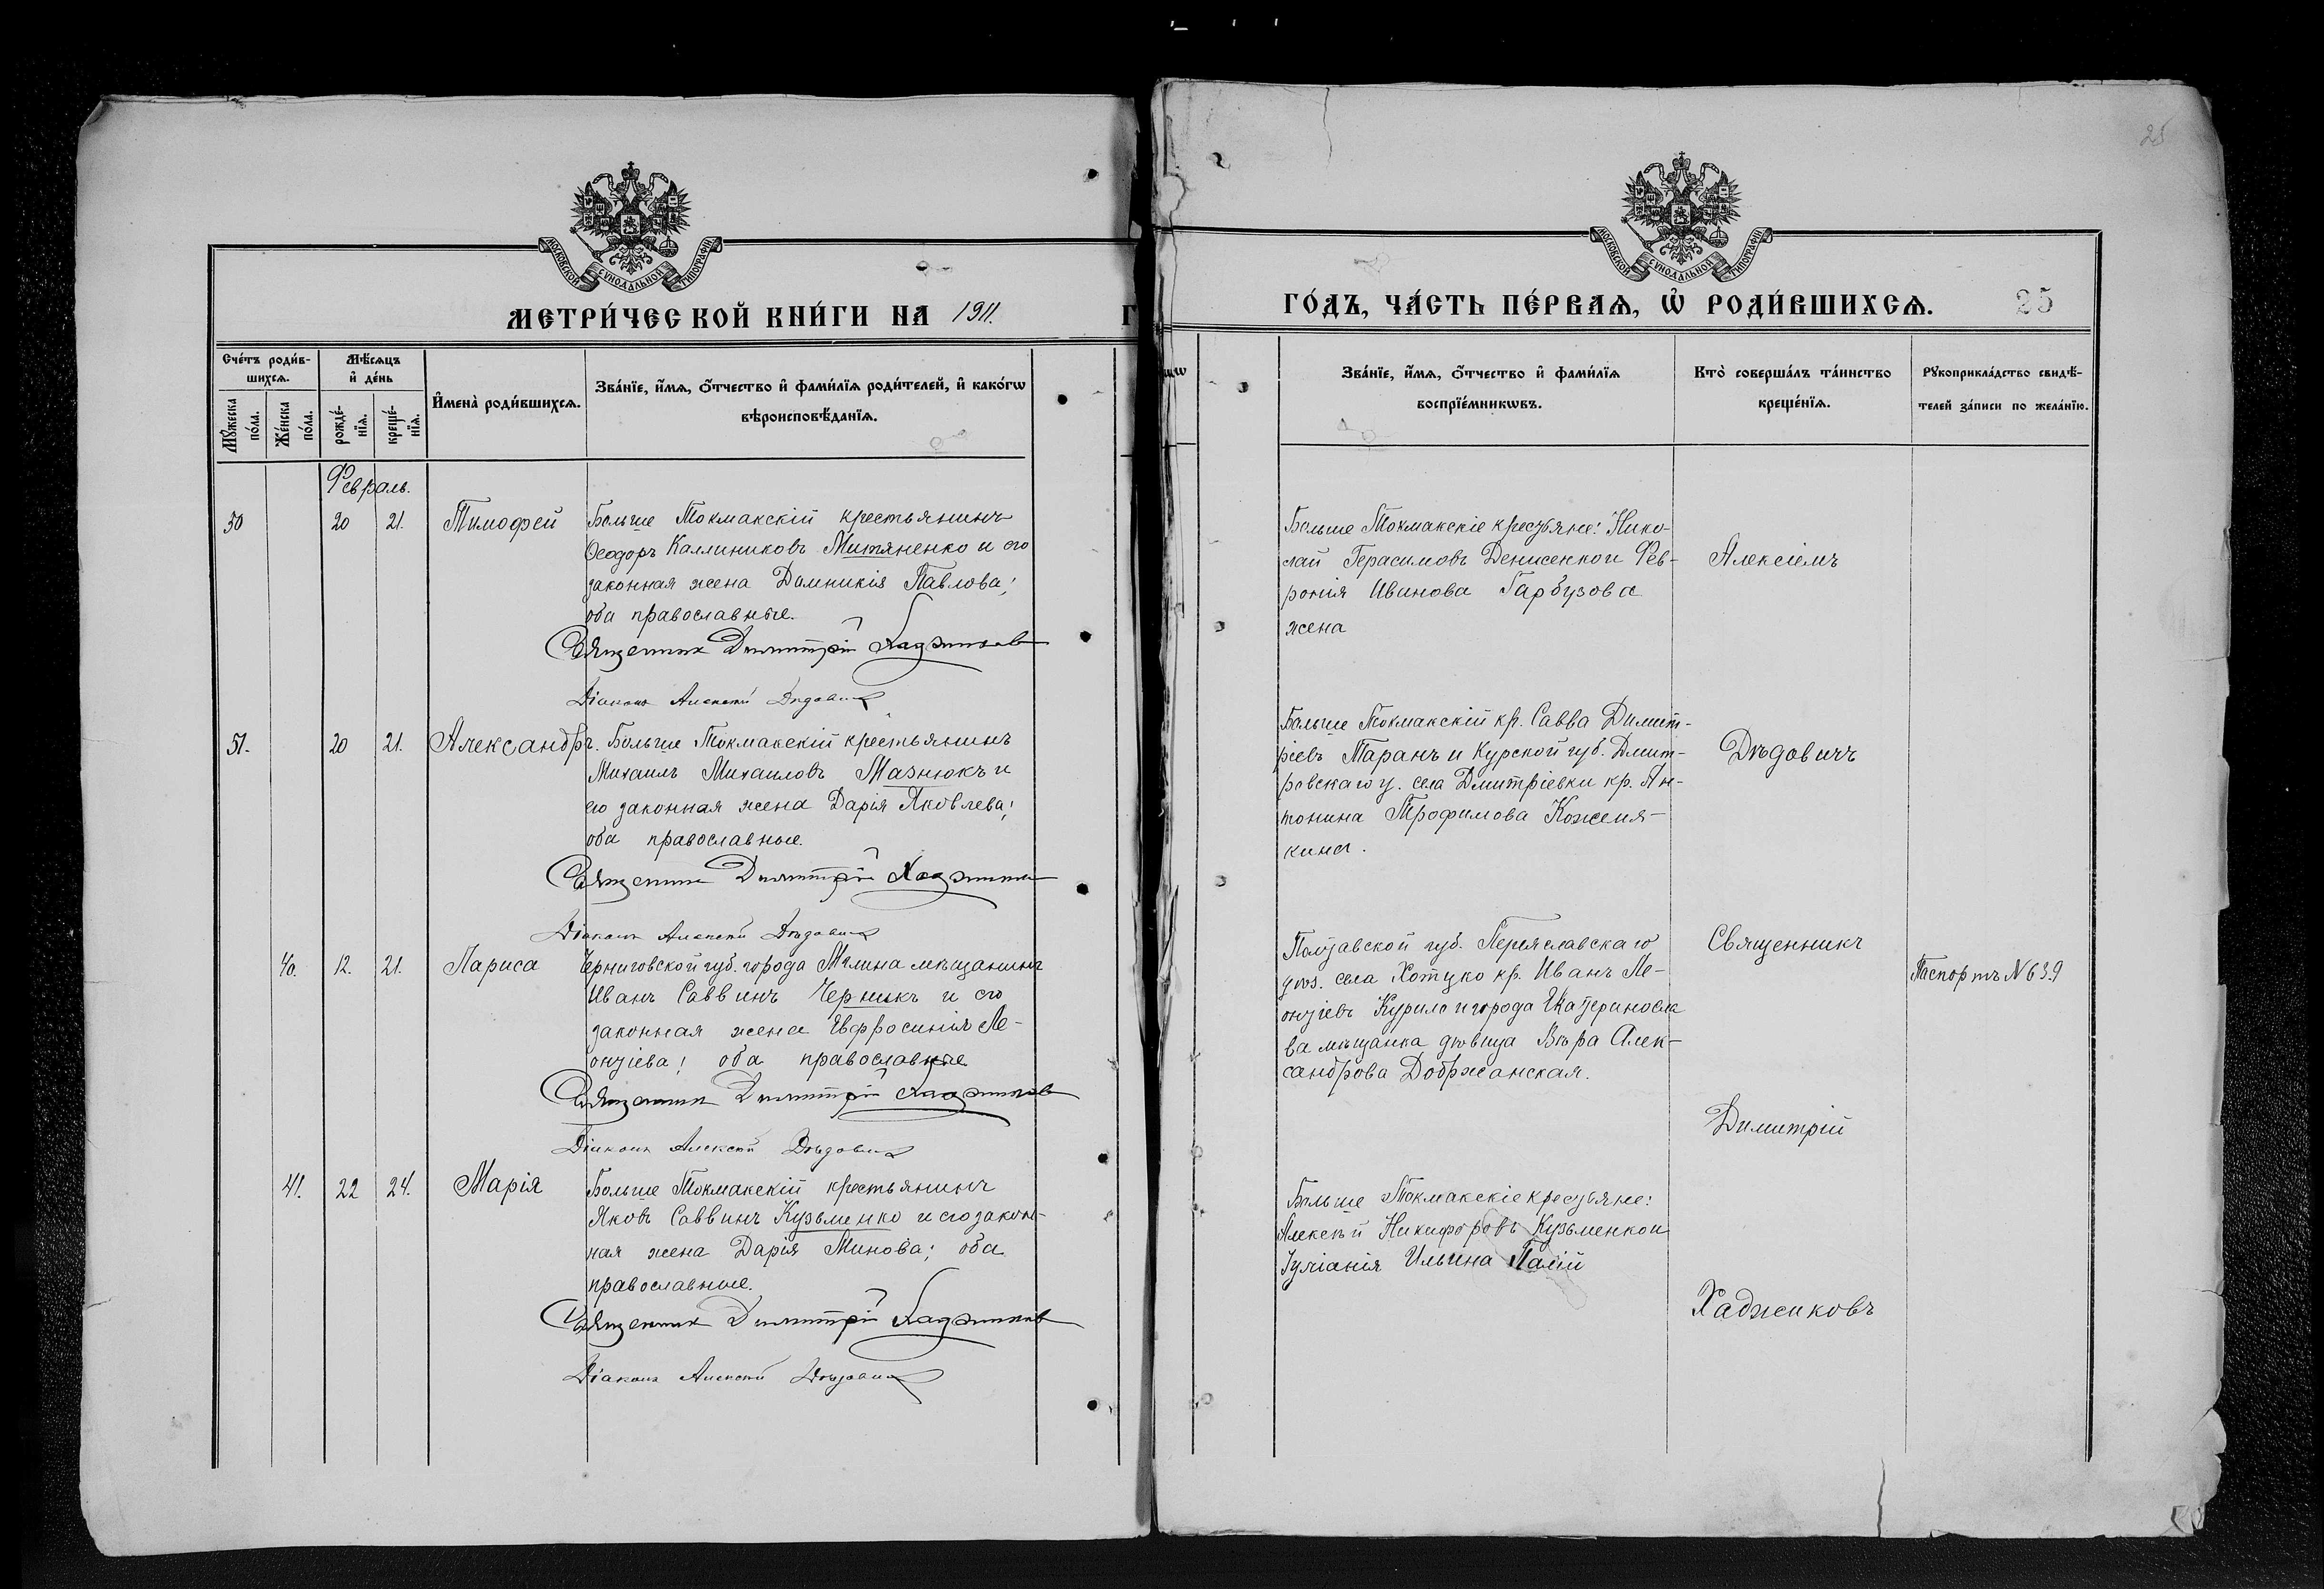 25
МОСКОВСКОЙ СѴНОДАЛЬНОЙ ТИПОГРАФІИ
МЕТРИ́ЧЕСКОЙ КНИ́ГИ НА 1911.
Сче́тъ роди́в-
шихсѧ.
Мꙋ́жеска
по́ла.
Же́нска
по́ла.
Мѣ́сѧцъ
и҆ де́нь
рожде́-
нїѧ.
креще́-
нїѧ.
И҆мена̀ роди́вшихсѧ.
Зва́нїе, и҆́мѧ, ѻ҆́тчество и҆ фами́лїѧ роди́телей, и҆ како́гѡ
вѣроисповѣ́данїѧ.
Февраль.
50 20 21. Тимофей
Больше Токмакскій крестьянинъ
Ѳеодоръ Каллиниковъ Митяненко и его
законная жена Домникія Павлова;
оба православные.
Священник Димитрій Хаджинов
Діаконъ Алексій Дѣдович
51. 20 21. Александръ.
Больше Токмакскій крестьянинъ
Михаилъ Михаиловъ Мазнюкъ и
его законная жена Дарія Яковлева;
оба православные.
Священник Димитрій Хаджинов
Діаконъ Алексій Дѣдович
40. 12. 21. Лариса
Черниговской губ. города Мглина мѣщанинъ
Иванъ Саввинъ Черникъ и его
законная жена Евфросинія Ле-
онтіева; оба православные
Священник Димитрій Хаджинов
Діаконъ Алексій Дѣдович
41. 22 24. Марія
Больше Токмакскій крестьянинъ
Яковъ Саввинъ Кузьменко и его закон-
ная жена Дарія Минова; оба
православные.
Священник Димитрій Хаджинов
Діаконъ Алексій Дѣдович
МОСКОВСКОЙ СѴНОДАЛЬНОЙ ТИПОГРАФІИ
ГО́ДЪ, ЧА́СТЬ ПЕ́РВАѦ, Ѡ҆ РОДИ́ВШИХСѦ. 25
Зва́нїе, и҆́мѧ, ѻ҆́тчество и҆ фами́лїѧ
воспрїе́мникѡвъ.
Кто̀ соверша́лъ та́инство
креще́нїѧ.
Рꙋкоприкла́дство свидѣ́-
телей за́писи по жела́нїю.
Больше Токмакскіе крестьяне: Нико-
лай Герасимовъ Денисенко и Фев-
ронія Иванова Гарбузова
жена
Алексіемъ
Больше Токмакскій кр. Савва Димит-
ріевъ Таранъ и Курской губ. Дмит-
ровскаго у. села Дмитріевки кр. Ан-
тонина Трофимова Кожемя-
кина.
Дѣдовичъ
Полтавской губ. Переяславскаго
уѣз. села Хотцко кр. Иванъ Ле-
онтіевъ Курило и города Екатериносла
ва мѣщанка дѣвица Вѣра Алек-
сандрова Добржанская.
Священникъ
Паспортъ №639
Димитрій
Больше Токмакскіе крестьяне:
Алексѣй Никифоровъ Кузьменко и
Іуліанія Ильина Палій
Хаджиновъ